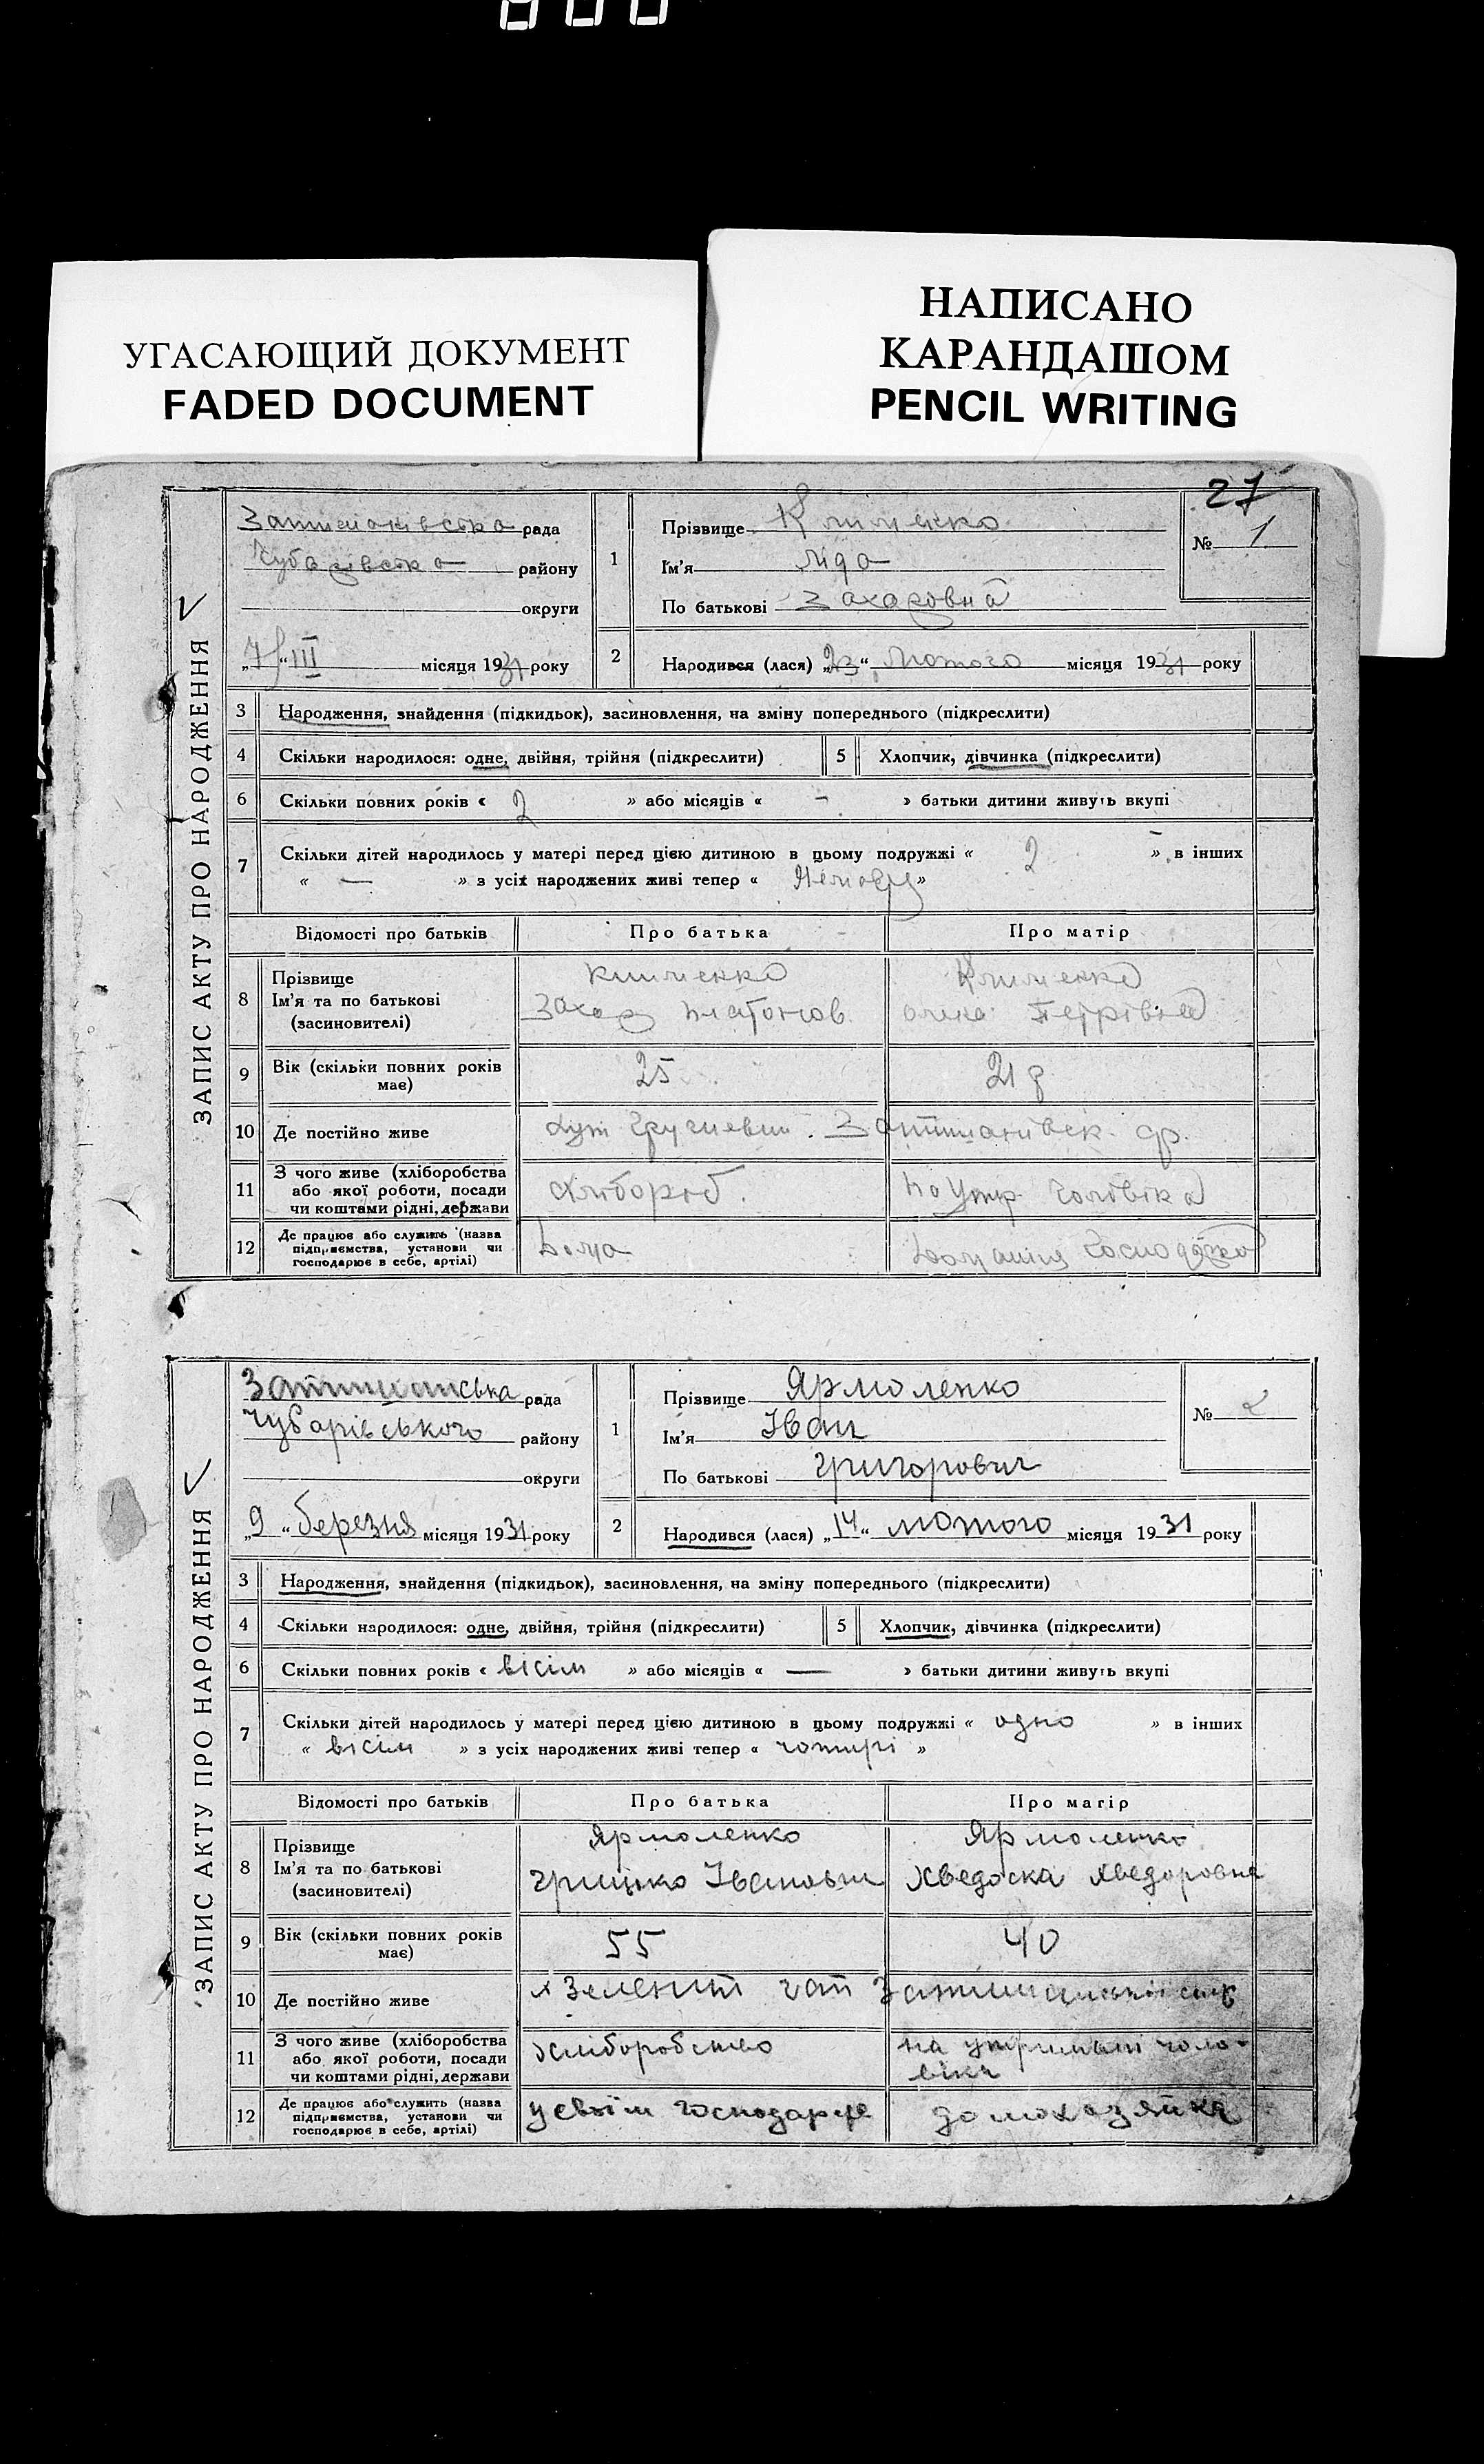 УГАСАЮЩИЙ ДОКУМЕНТ
FADED DOCUMENT
НАПИСАНО
КАРАНДАШОМ
PENCIL WRITING
27
ЗАПИС АКТУ ПРО НАРОДЖЕННЯ
рада
району
округи
„7“ III місяця 1931 року
1 Прізвище Клименко
Ім'я Ліда
По батькові Захаровна
№ 1
2 Народився (лася) „23“ Лютого місяця 1931 року
3 Народження, знайдення (підкидьок), засиновлення, на зміну попереднього (підкреслити)
4 Скільки народилося: одне, двійня, трійня (підкреслити) 5 Хлопчик, дівчинка (підкреслити)
6 Скільки повних років « 2 » або місяців « - » батьки дитини живуть вкупі
7 Скільки дітей народилось у матері перед цією дитиною в цьому подружжі « 2 » в інших
« — » з усіх народжених живі тепер « »
Відомості про батьків Про батька Про матір
8 Прізвище Клименко Клименко
Ім'я та по батькові Захар Платонов. Олена Петрівна
(засновителі)
9 Вік (скільки повних років має) 25 21 р
10 Де постійно живе
11 З чого живе (хліборобства або якої роботи, посади чи коштами рідні, держави Хлібороб. На Утр. Чоловіка
12 Де працює або служить (назва підприємства, установи чи господарює в себе, артілі) Дома Домашня
ЗАПИС АКТУ ПРО НАРОДЖЕННЯ
Затишанська рада
Чубарівського району
округи
„9“ березня місяця 1931 року
1 Прізвище Ярмоленко
Ім'я Іван
По батькові Григорович
№ 2
2 Народився (лася) „14“ лютого місяця 1931 року
3 Народження, знайдення (підкидьок), засиновлення, на зміну попереднього (підкреслити)
4 Скільки народилося: одне, двійня, трійня (підкреслити) 5 Хлопчик, дівчинка (підкреслити)
6 Скільки повних років « вісім » або місяців « — » батьки дитини живуть вкупі
7 Скільки дітей народилось у матері перед цією дитиною в цьому подружжі « одно » в інших
« вісім » з усіх народжених живі тепер « чотирі »
Відомості про батьків Про батька Про матір
8 Прізвище Ярмоленко Ярмоленко
Ім'я та по батькові Грицько Іванович Хведоска Хведоровна
(засиновителі)
9 Вік (скільки повних років має) 55 40
10 Де постійно живе х Зелений Гай Затишанської
11 З чого живе (хліборобства або якої роботи, посади чи коштами рідні, держави хліборобство на утримані чоловіка
12 Де працює або служить (назва підприємства, установи чи господарює в себе, артілі) у своїм господарстве домохозяйка